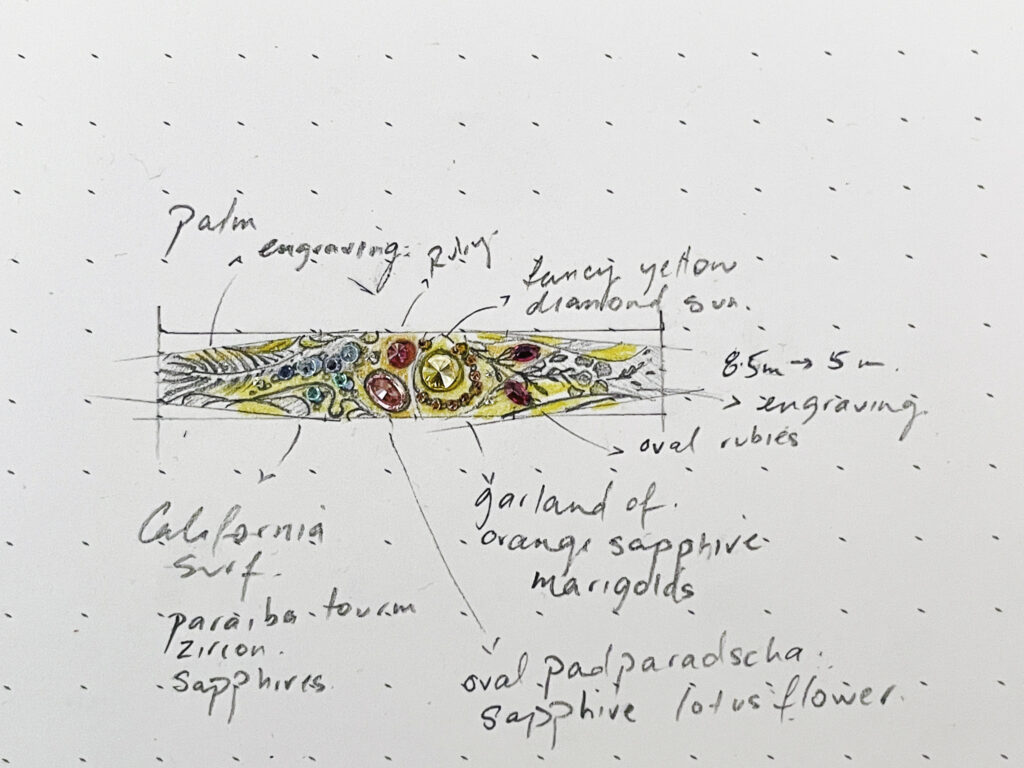 palm
engraving.
ruby
fancy yellow
diamond sun.
8.5m → 5m.
engraving.
oval rubies
garland of.
orange sapphire
marigolds
California
surf.
paraiba tourm
zircon.
sapphires
oval padparadscha.
sapphire lotus flower.